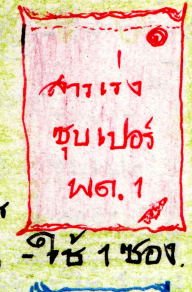 สารเร่ง
ซุบเปอร์
พด. 1
- ใช้ 1 ซอง.